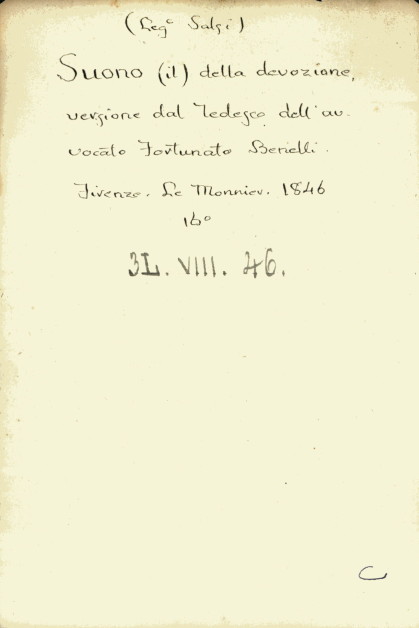 (Legº Salsi)
Suono (il) della devozione,
versione dal Tedesco dell'av-
vocato Fortunato Benelli.
Firenze. Le Monnier. 1846
16º
3L. VIII. 46.
C